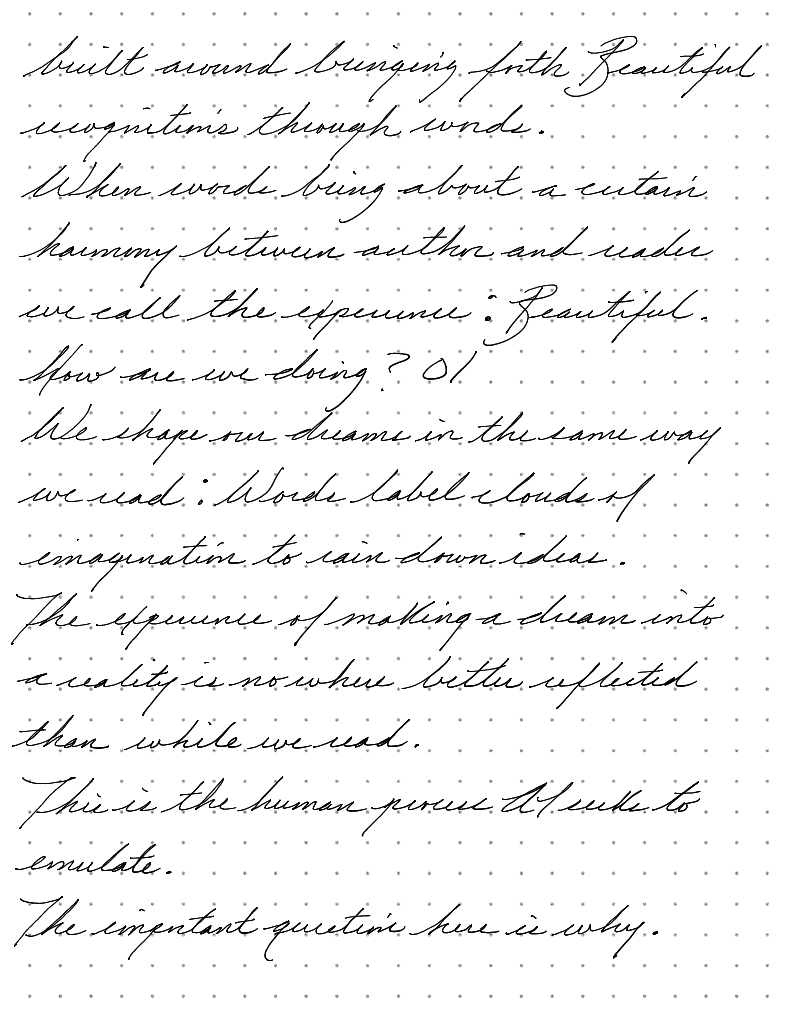 built around bringing forth Beautiful
recognitions through words.
When words bring about a certain
harmony between author and reader
we call the experience : Beautiful.
How are we doing?
We shape our dreams in the same way
we read : Words label clouds of
imagination to rain down ideas.
The experience of making a dream into
a reality is nowhere better reflected
than while we read.
This is the human process AI seeks to
emulate.
The important question here is why.